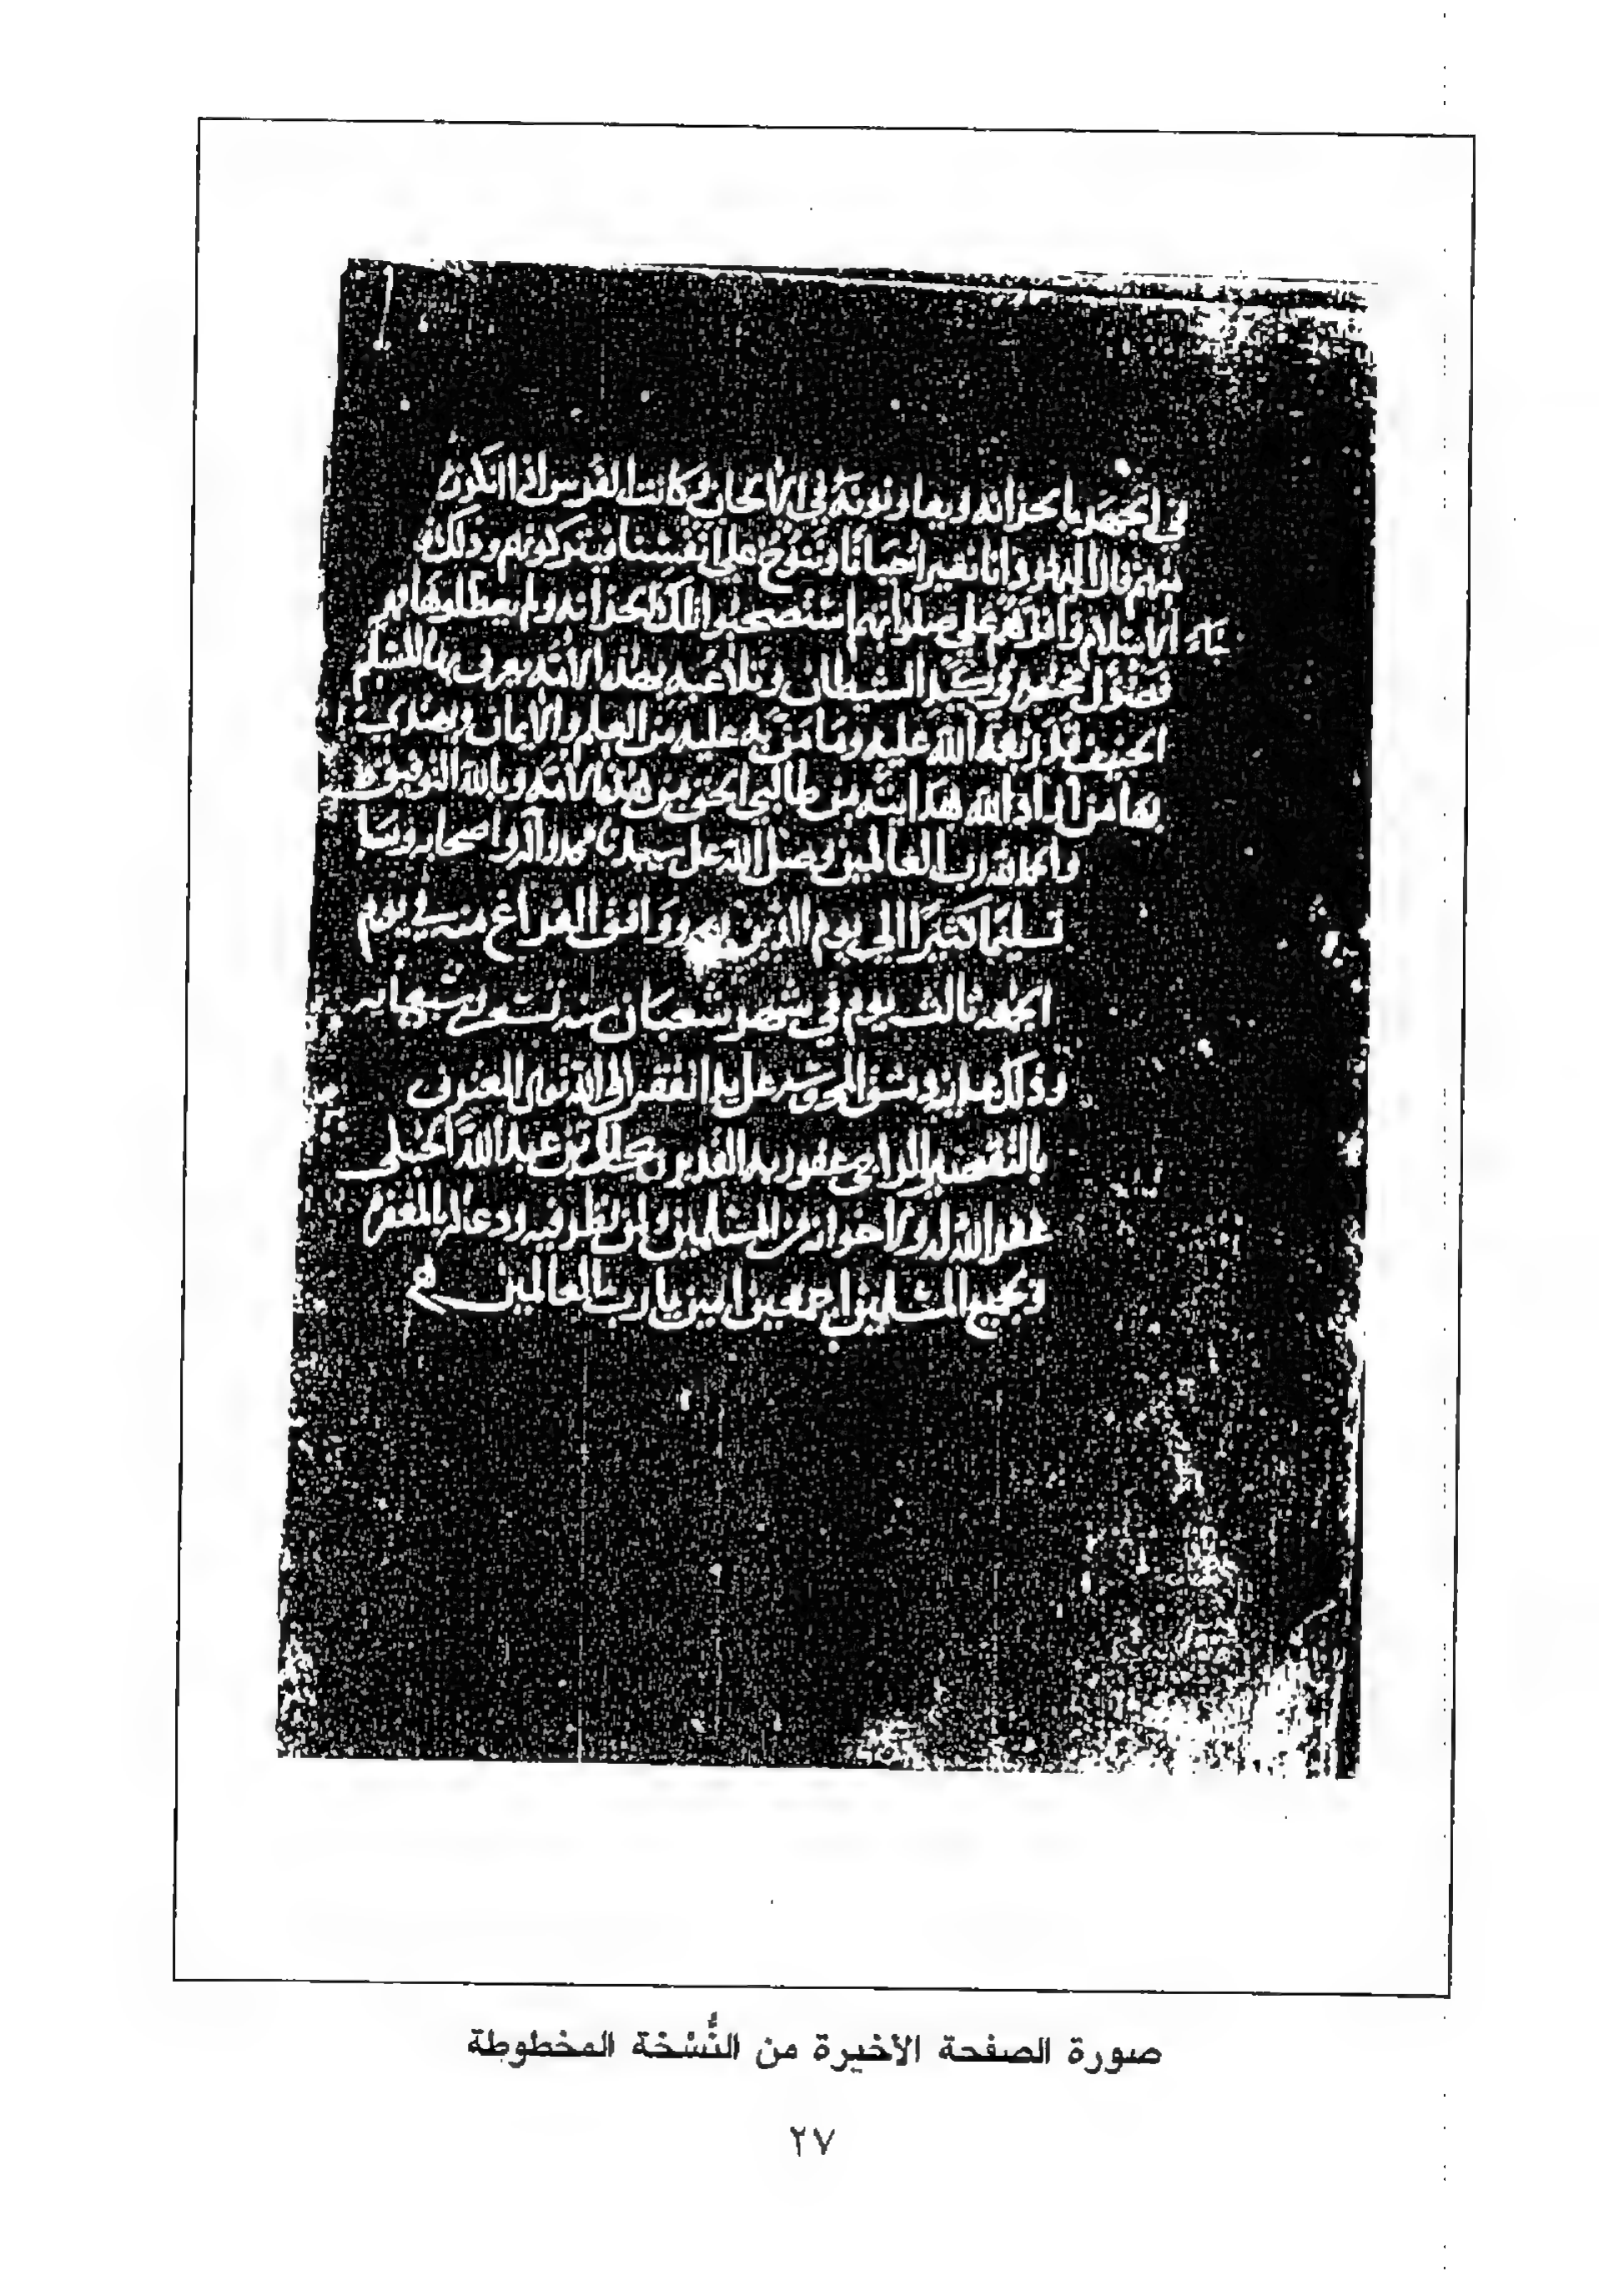 في الجهر بالحزانه ويعاونونه في الألحان وكانت الفرس اذا انكرت
منهم قال اليهود انا نغير احيانا وننوح على انفسنا فيتركونهم وذلك
جاء الاسلام واقرهم على صلواتهم استصحبوا تلك الحزانه ولم يعطلوها
فصول مختصره في كيد الشيطان وتلاعبه بهذه الامه يعرف بها المسلم
الحنيف قدر نعمة الله عليه وما من به عليه من العلم والايمان ويهتدي
بها من اراد الله هدايته من طالبي الحق من هذه الامه وبالله التوفيق
والحمد لله رب العالمين وصلى الله على سيدنا محمد وآله واصحابه وسلم
تسليما كثيرا الى يوم الدين ووافق الفراغ منه في يوم
الجمعه ثالث يوم في شهر شعبان سنه تسع
وذلك بمدينة دمشق المحروسه على يد الفقير الى الله تعالى المعترف
بالتقصير الراجي عفو ربه القدير بن عبد الله الحنبلي
غفر الله له ولاخوانه من المسلمين ولمن نظر فيه ودعا له بالمغفرة
ولجميع المسلمين اجمعين امين يا رب العالمين
صورة الصفحة الأخيرة من النُّسْخة المخطوطة
٢٧